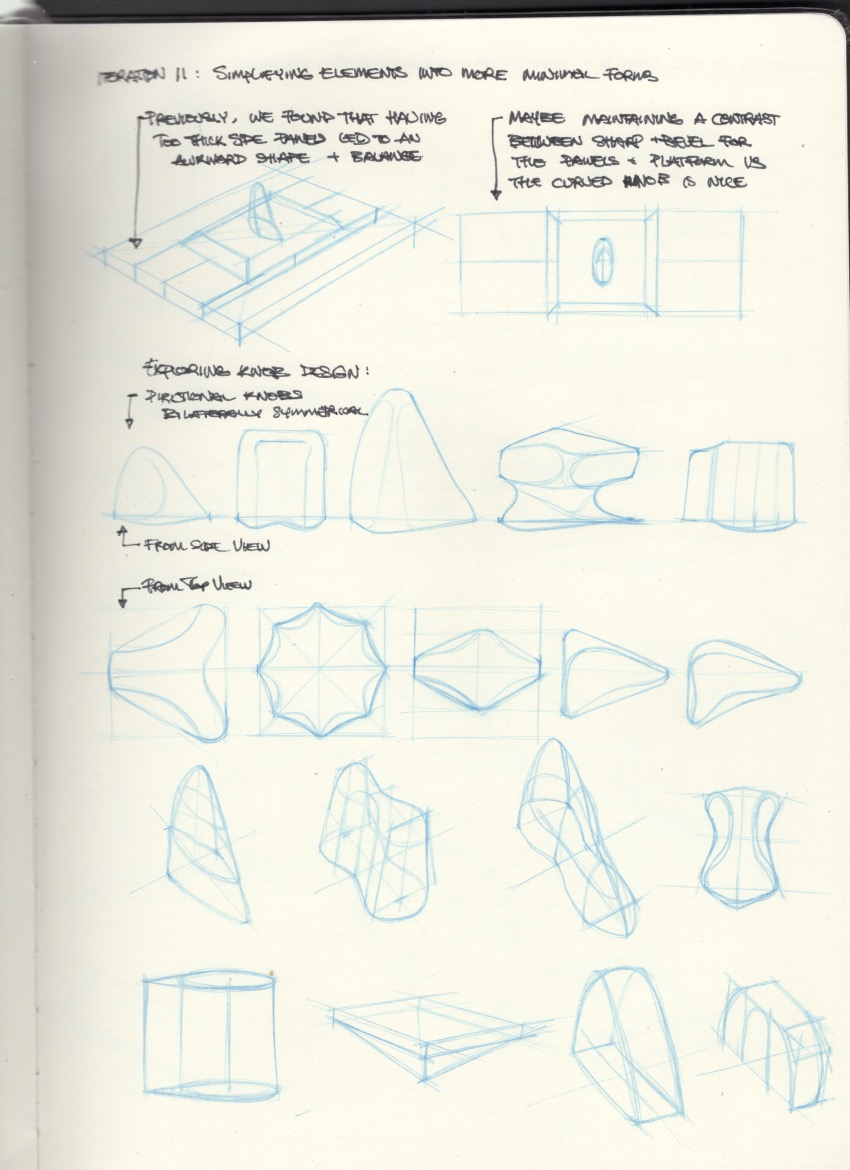 ITERATION 11: SIMPLIFYING ELEMENTS INTO MORE MINIMAL FORMS
PREVIOUSLY, WE FOUND THAT HAVING
TOO THICK SIDE PANELS LED TO AN
AWKWARD SHAPE + BALANCE
MAYBE MAINTAINING A CONTRAST
BETWEEN SHARP + BEVEL FOR
THE PANELS + PLATFORM VS
THE CURVED KNOB IS NICE
EXPLORING KNOB DESIGN:
DIRECTIONAL KNOBS
BILATERALLY SYMMETRICAL
FROM SIDE VIEW
FROM TOP VIEW